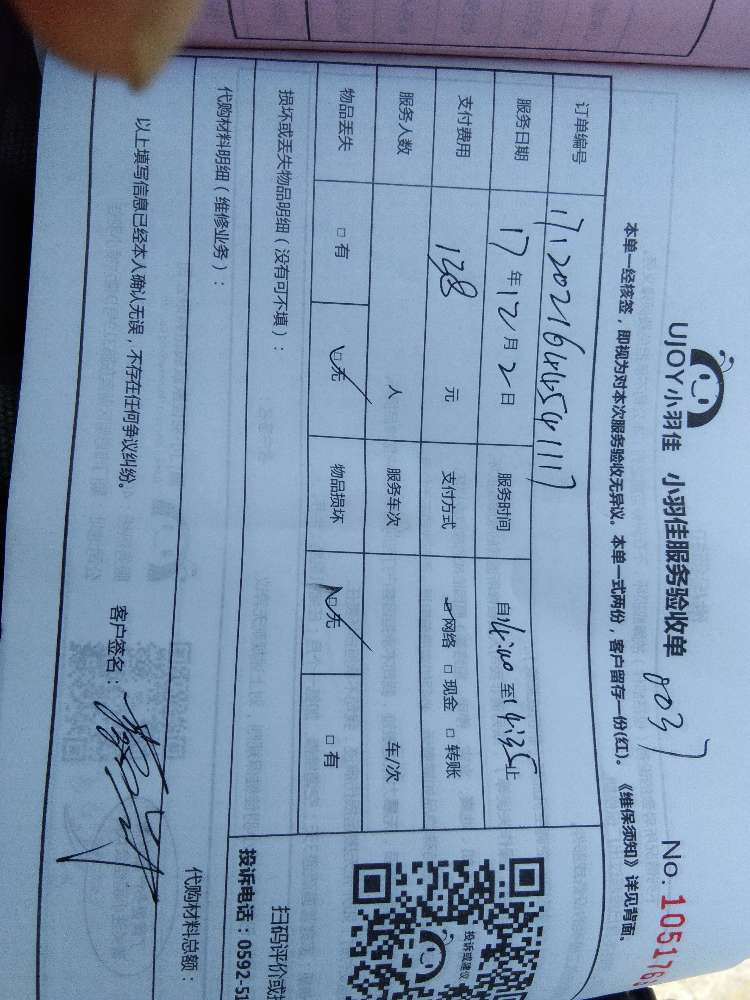 UJOY小羽佳 小羽佳服务验收单 8037 No. 105176
本单一经核签，即视为对本次服务验收无异议。本单一式两份，客户留存一份(红)。《维保须知》详见背面。
订单编号
服务日期 17 年 12 月 2 日 服务时间 自14:00 至14:35止
支付费用 128 元 支付方式 网络 □ 现金 □ 转账
服务人数 人 服务车次 车/次
物品丢失 □ 有 □ 无 物品损坏 □ 无 □ 有
损坏或丢失物品明细（没有可不填）：
投诉或建议
扫码评价或投
投诉电话：0592-51
代购材料明细（维修业务）：
代购材料总额：
以上填写信息已经本人确认无误，不存在任何争议纠纷。
客户签名：